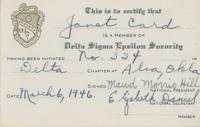 This is to certify that
Janet Card
IS A MEMBER OF
Delta Sigma Epsilon Sorority
HAVING BEEN INITIATED No. 334 IN
Delta CHAPTER AT Alva, Okla
SIGNED Maud Morris Hill
NATIONAL PRESIDENT
DATE March 6, 1946. Elizabeth Daniel
NATIONAL SECRETARY
MEMBER